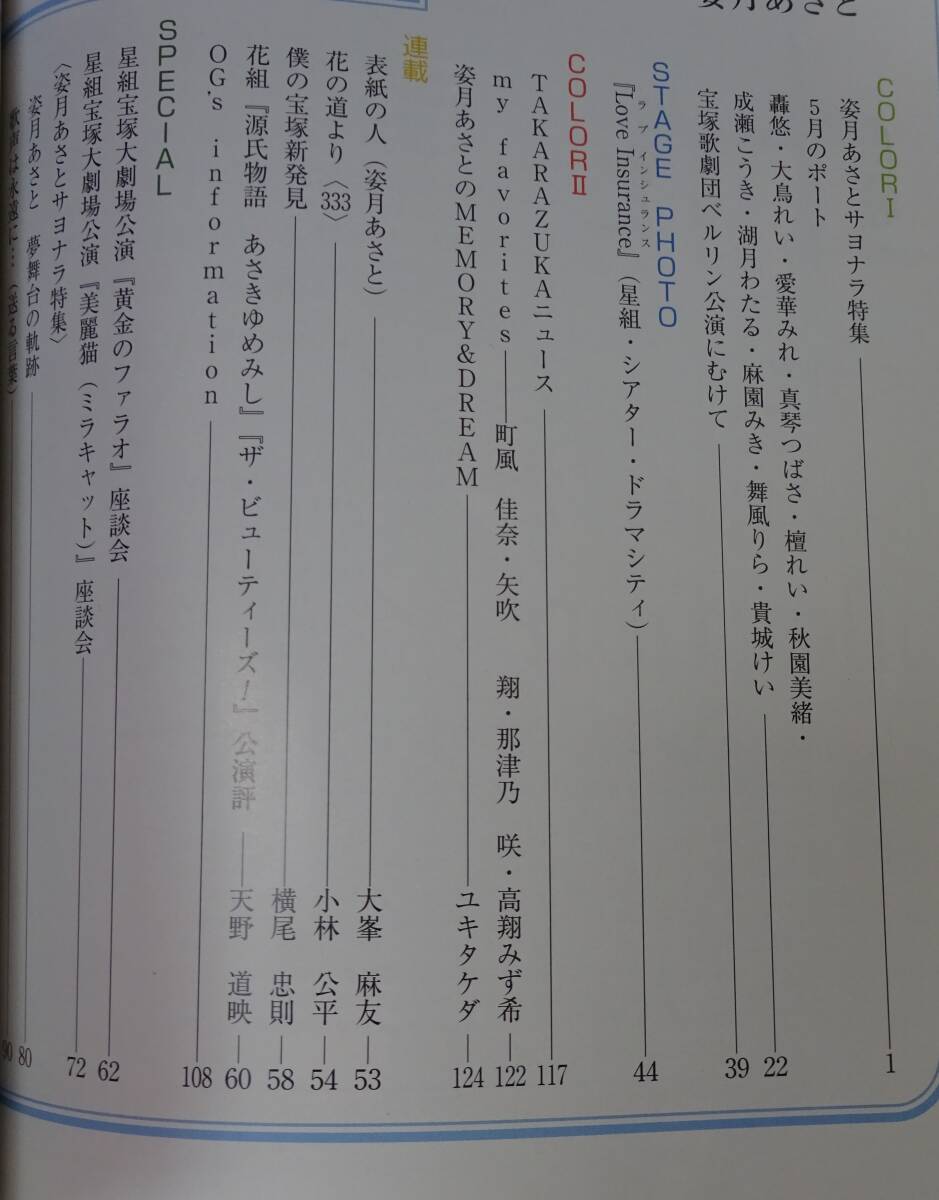 姿月あさと
COLOR I
姿月あさとサヨナラ特集 1
5月のポート
轟悠・大鳥れい・愛華みれ・真琴つばさ・檀れい・秋園美緒・
成瀬こうき・湖月わたる・麻園みき・舞風りら・貴城けい 22
宝塚歌劇団ベルリン公演にむけて 39
STAGE PHOTO
『Love Insurance』(星組・シアター・ドラマシティ) 44
ラブ インシュランス
COLOR II
TAKARAZUKAニュース 117
my favorites 町風 佳奈・矢吹 翔・那津乃 咲・高翔みず希 122
姿月あさとのMEMORY&DREAM ユキタケダ 124
連載
表紙の人(姿月あさと) 大峯 麻友 53
花の道より〈333〉 小林 公平 54
僕の宝塚新発見 横尾 忠則 58
花組『源氏物語 あさきゆめみし』『ザ・ビューティーズ!』公演評 天野 道映 60
OG's information 108
SPECIAL
星組宝塚大劇場公演『黄金のファラオ』座談会 62
星組宝塚大劇場公演『美麗猫(ミラキャット)』座談会 72
〈姿月あさとサヨナラ特集〉
姿月あさと 夢舞台の軌跡 80
歌声は永遠に…(送る言葉) 90